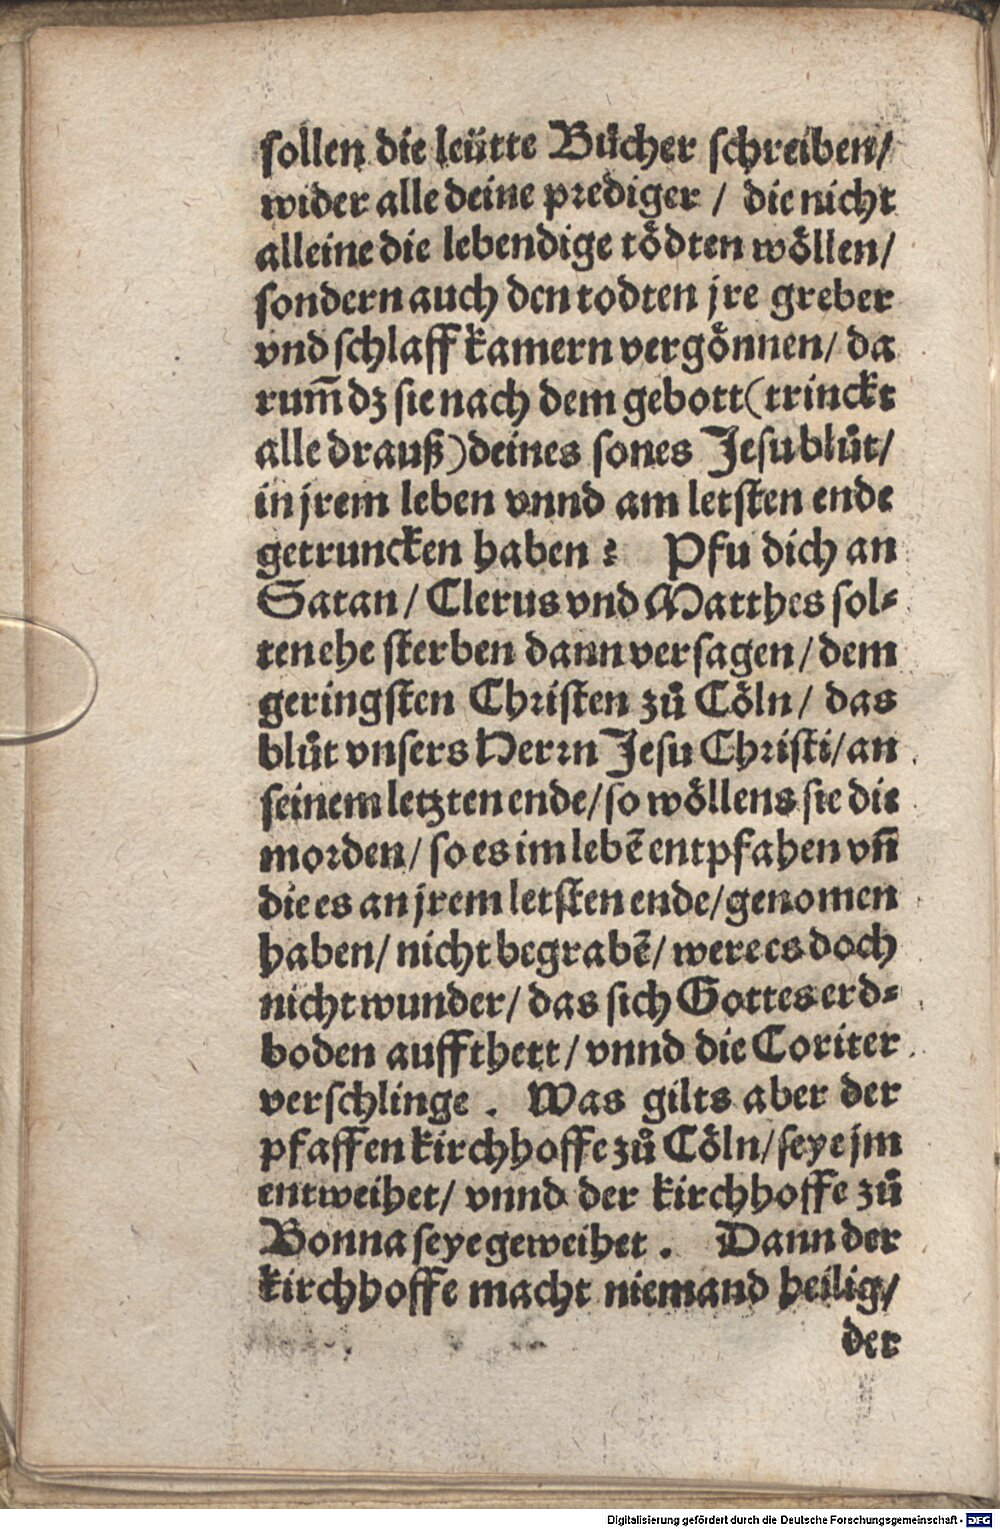 sollen die leütte Bücher schreiben/
wider alle deine prediger / die nicht
alleine die lebendige tödten wöllen/
sondern auch den todten jre greber
vnd schlaff kamern vergönnen/ da
rum̃ dz sie nach dem gebott (trinckt
alle drauß) deines sones Jesu blůt/
in jrem leben vnnd am letsten ende
getruncken haben? Pfu dich an
Satan/ Clerus vnd Matthes sol-
ten ehe sterben dann versagen/ dem
geringsten Christen zů Cöln/ das
blůt vnsers Herrn Jesu Christi/ an
seinem letzten ende/ so wöllens sie die
morden/ so es im lebẽ entpfahen vñ
die es an jrem letsten ende/ genomen
haben/ nicht begrabẽ/ were es doch
nicht wunder/ das sich Gottes erd-
boden auffthett/ vnnd die Coriter
verschlinge. Was gilts aber der
pfaffen kirchhoffe zů Cöln/ seye jm
entweihet/ vnnd der kirchhoffe zů
Bonna seye geweihet. Dann der
kirchhoffe macht niemand heilig/
der
Digitalisierung gefördert durch die Deutsche Forschungsgemeinschaft - DFG